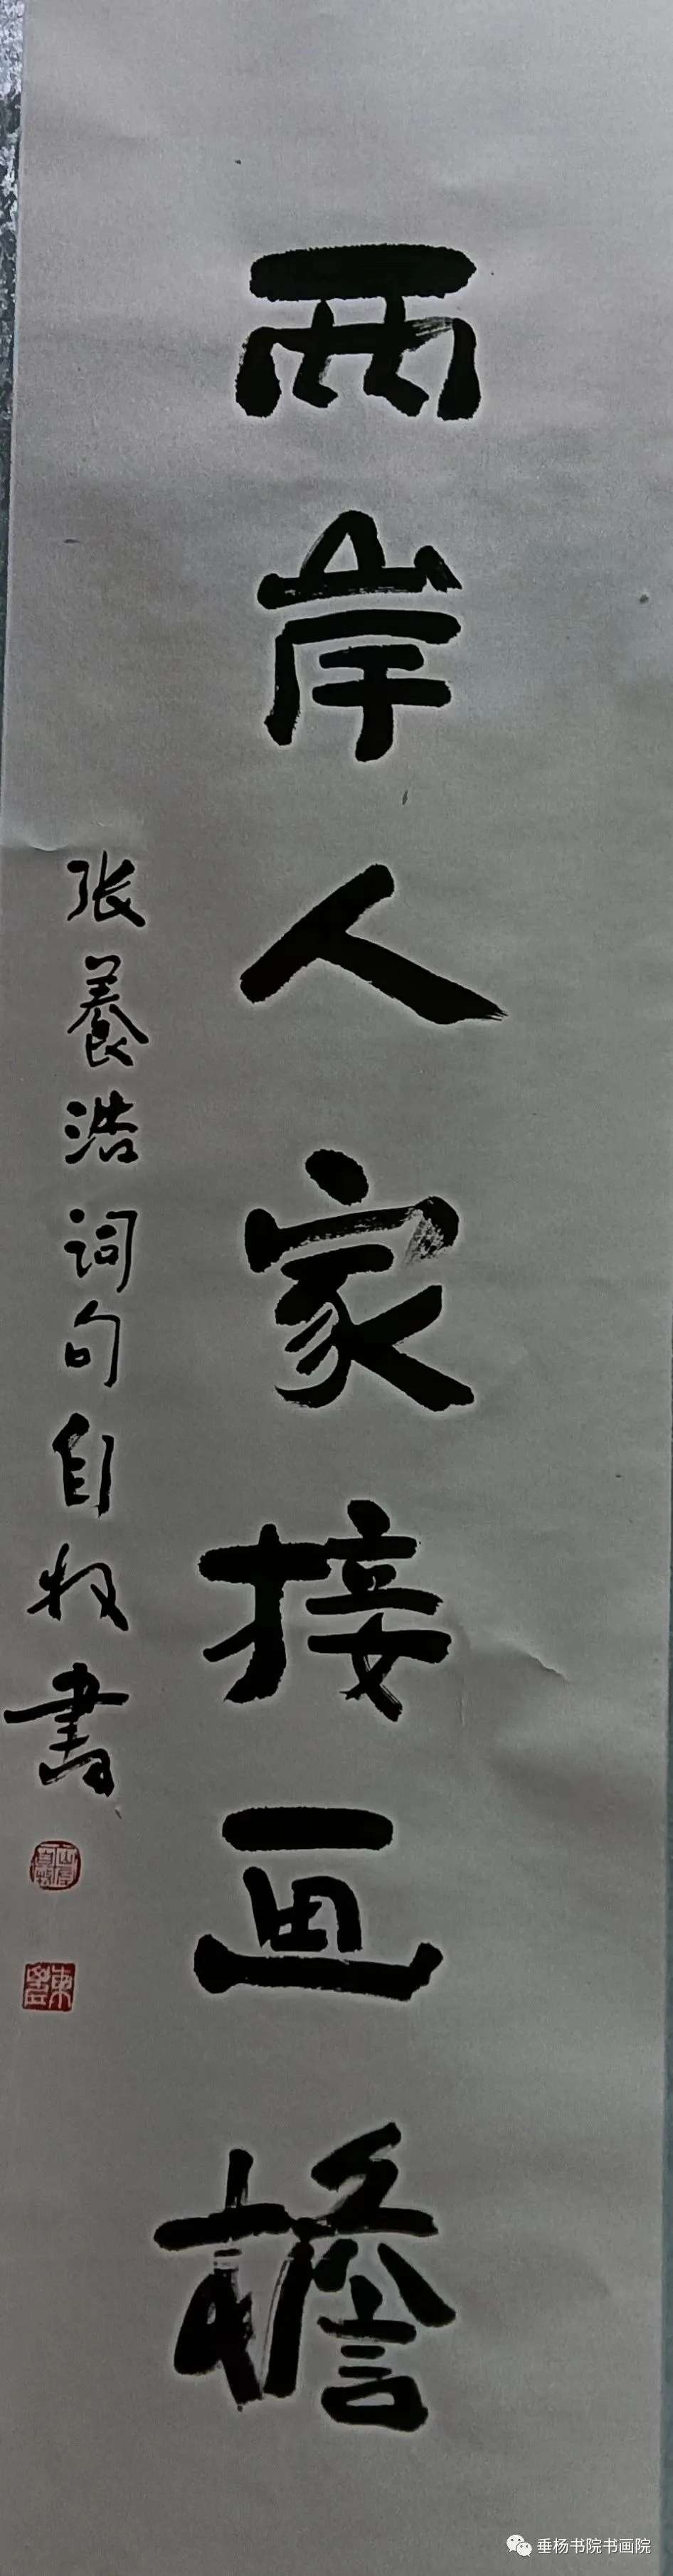 两岸人家接画檐
张養浩词句自牧書
垂杨书院书画院